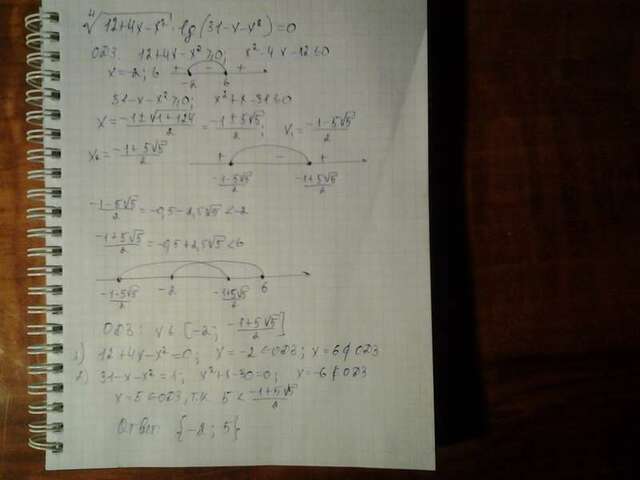 ⁴√(12+4x-x²) · lg(31-x-x²)=0
ОДЗ: 12+4x-x²≥0; x²-4x-12≤0
x=-2; 6 + - +
-2 6
31-x-x²≥0; x²+x-31≤0
x=(-1±√(1+124))/2=(-1±5√5)/2; x₁=(-1-5√5)/2
x₂=(-1+5√5)/2 + - +
(-1-5√5)/2 (-1+5√5)/2
(-1-5√5)/2=-0,5-2,5√5<-2
(-1+5√5)/2=-0,5+2,5√5<6
(-1-5√5)/2 -2 (-1+5√5)/2 6
ОДЗ: x∈[-2; (-1+5√5)/2]
1) 12+4x-x²=0; x=-2∈ОДЗ; x=6∉ОДЗ
2) 31-x-x²=1; x²+x-30=0; x=-6∉ОДЗ
x=5∈ОДЗ, т.к. 5<(-1+5√5)/2
Ответ: {-2; 5}